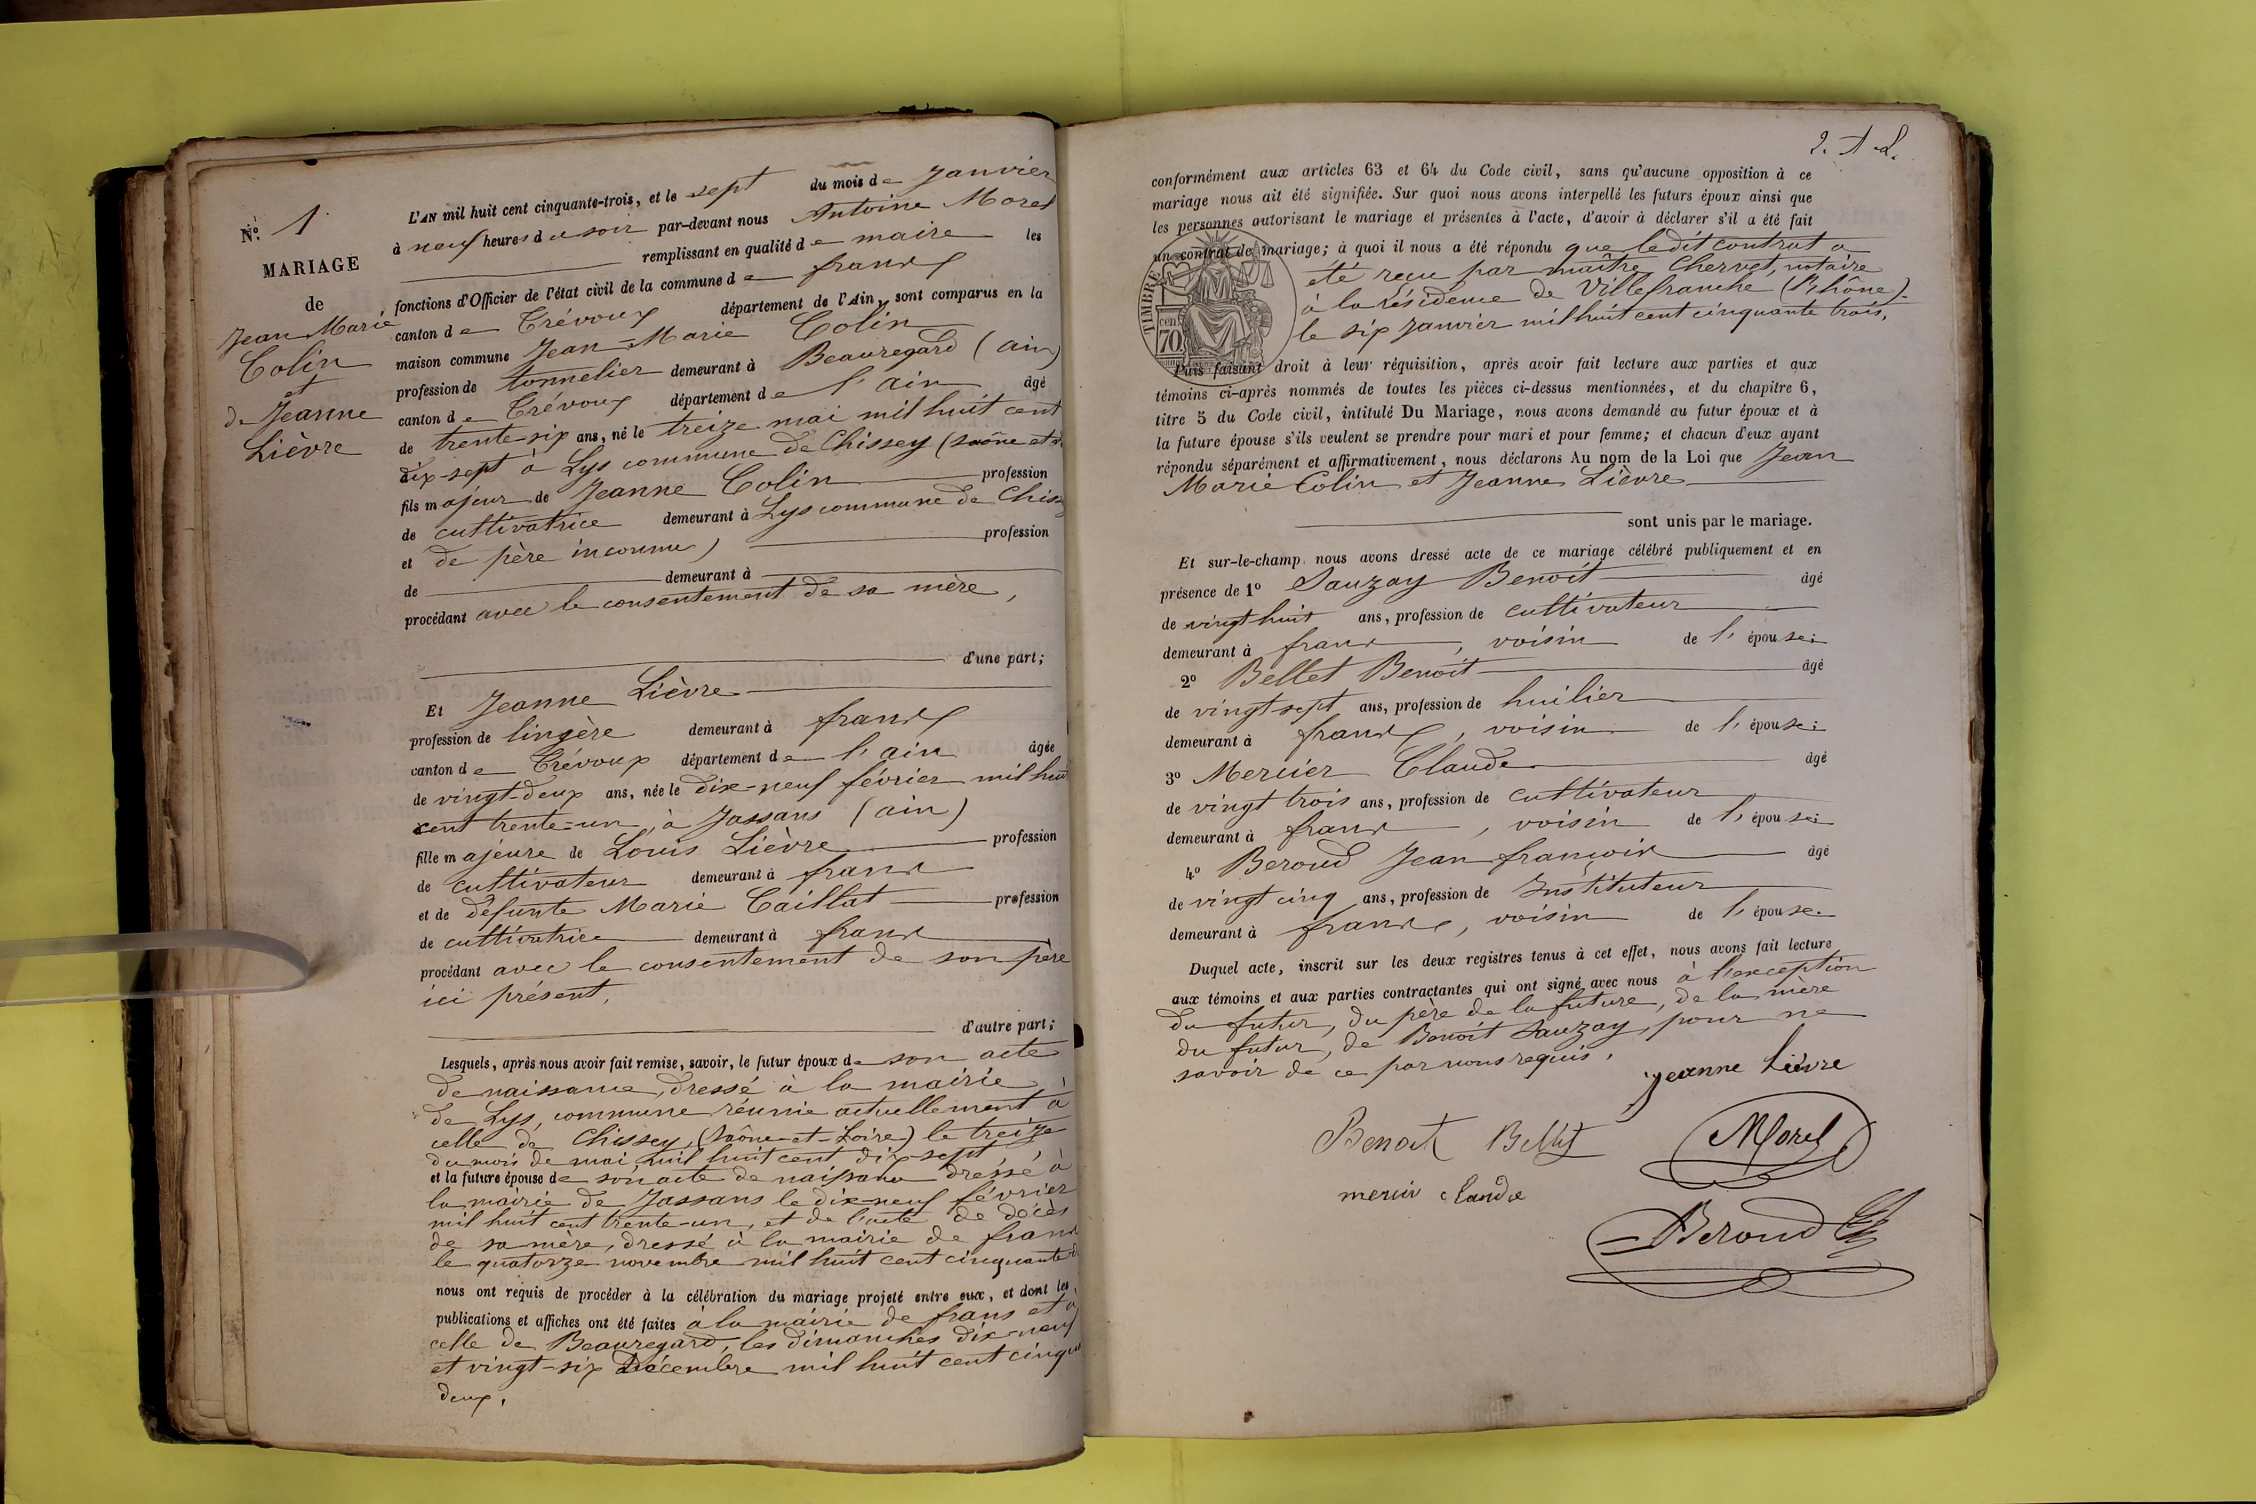 N.º 1
MARIAGE
de
Jean Marie
Colin
et
de Jeanne
Lièvre
L'AN mil huit cent cinquante-trois, et le sept du mois de Janvier
à neuf heures du soir par-devant nous Antoine Morel
remplissant en qualité de maire les
fonctions d'Officier de l'état civil de la commune de frans
canton de Trévoux département de l'Ain, sont comparus en la
maison commune Jean-Marie Colin
profession de tonnelier demeurant à Beauregard (ain)
canton de Trévoux département de l'ain âgé
de trente-six ans, né le treize mai mil huit cent
dix-sept à Lys commune de Chissey (Saône et
fils majeur de Jeanne Colin profession
de cultivatrice demeurant à Lys commune de Chiss
et de père inconnu, profession
de demeurant à
procédant avec le consentement de sa mère,
d'une part;
Et Jeanne Lièvre
profession de lingère demeurant à frans
canton de Trévoux département de l'ain âgée
de vingt-deux ans, née le dix-neuf février mil huit
cent trente-un, à Jassans (ain)
fille majeure de Louis Lièvre profession
de cultivateur demeurant à frans
et de défunte Marie Caillat profession
de cultivatrice demeurant à frans
procédant avec le consentement de son père
ici présent,
d'autre part;
Lesquels, après nous avoir fait remise, savoir, le futur époux de son acte
de naissance, dressé à la mairie
de Lys, commune réunie actuellement à
celle de Chissey, (Saône-et-Loire) le treize
du mois de mai mil huit cent dix-sept,
et la future épouse de son acte de naissance dressé à
la mairie de Jassans le dix-neuf février
mil huit cent trente-un, et de l'acte de décès
de sa mère, dressé à la mairie de frans
le quatorze novembre mil huit cent cinquante
nous ont requis de procéder à la célébration du mariage projeté entre eux, et dont les
publications et affiches ont été faites à la mairie de frans et à
celle de Beauregard, les dimanches dix-neuf
et vingt-six Décembre mil huit cent cinqua
deux.
2. A L.
conformément aux articles 63 et 64 du Code civil, sans qu'aucune opposition à ce
mariage nous ait été signifiée. Sur quoi nous avons interpellé les futurs époux ainsi que
les personnes autorisant le mariage et présentes à l'acte, d'avoir à déclarer s'il a été fait
un contrat de mariage; à quoi il nous a été répondu que le dit contrat a
été reçu par maître Chervet, notaire
à la résidence de Villefranche (Rhône).
le six janvier mil huit cent cinquante trois.
TIMBRE
cen
70.
Puis faisant droit à leur réquisition, après avoir fait lecture aux parties et aux
témoins ci-après nommés de toutes les pièces ci-dessus mentionnées, et du chapitre 6,
titre 5 du Code civil, intitulé Du Mariage, nous avons demandé au futur époux et à
la future épouse s'ils veulent se prendre pour mari et pour femme; et chacun d'eux ayant
répondu séparément et affirmativement, nous déclarons Au nom de la Loi que Jean
Marie Colin et Jeanne Lièvre
sont unis par le mariage.
Et sur-le-champ nous avons dressé acte de ce mariage célébré publiquement et en
présence de 1º Sauzay Benoît âgé
de vingt huit ans, profession de cultivateur
demeurant à frans, voisin de l'épouse;
2º Bellet Benoit âgé
de vingt-sept ans, profession de huilier
demeurant à frans, voisin de l'épouse;
3º Mercier Claude âgé
de vingt trois ans, profession de cultivateur
demeurant à frans, voisin de l'épouse;
4º Beroud Jean françois âgé
de vingt cinq ans, profession de Instituteur
demeurant à frans, voisin de l'épouse.
Duquel acte, inscrit sur les deux registres tenus à cet effet, nous avons fait lecture
aux témoins et aux parties contractantes qui ont signé avec nous à l'exception
du futur, du père de la future, de la mère
du futur, de Benoit Sauzay, pour ne
savoir de ce par nous requis.
Jeanne Lièvre
Benoit Bellet
Morel
mercier claude
Beroud